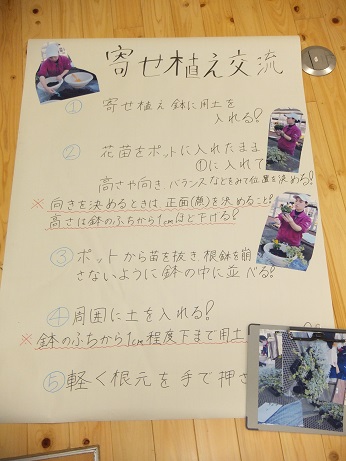 寄せ植え交流
① 寄せ植え鉢に用土を
入れる!
② 花苗をポットに入れたまま
①に入れて
高さや向き、バランスなどをみて位置を決める!
※向きを決めるときは正面(顔)を決めること!
高さは鉢のふちから1cmほど下げる!
③ ポットから苗を抜き、根鉢を崩
さないように鉢の中に並べる!
④ 周囲に土を入れる!
※鉢のふちから1cm程度下まで用土
⑤ 軽く根元を手で押さ